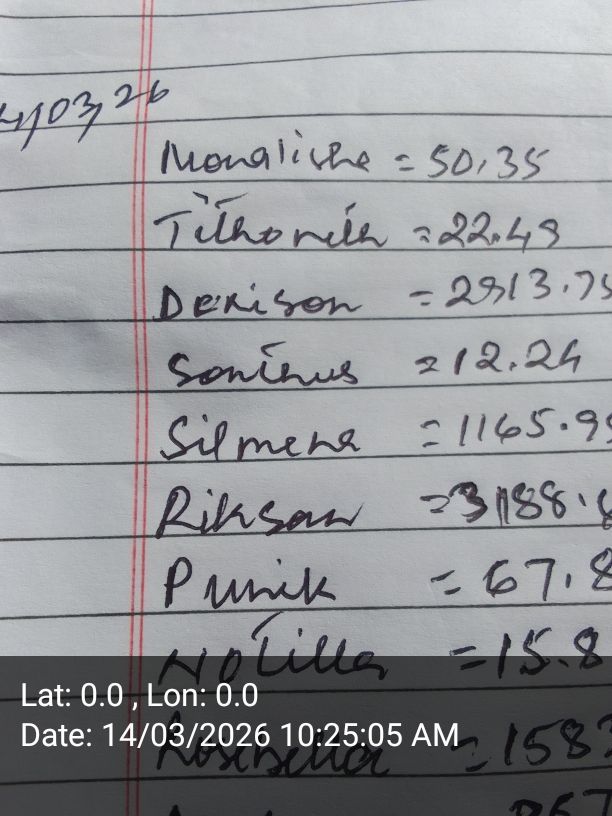 4,03,26
Monalishe = 50.35
Tithonith = 22.49
Denison = 2913.75
Sonthus = 12.24
Silmena = 1165.99
Riksan = 3188.
Punik = 67.8
Notilla = 15.8
Lat: 0.0 , Lon: 0.0
Date: 14/03/2026 10:25:05 AM
Rosebella = 1583